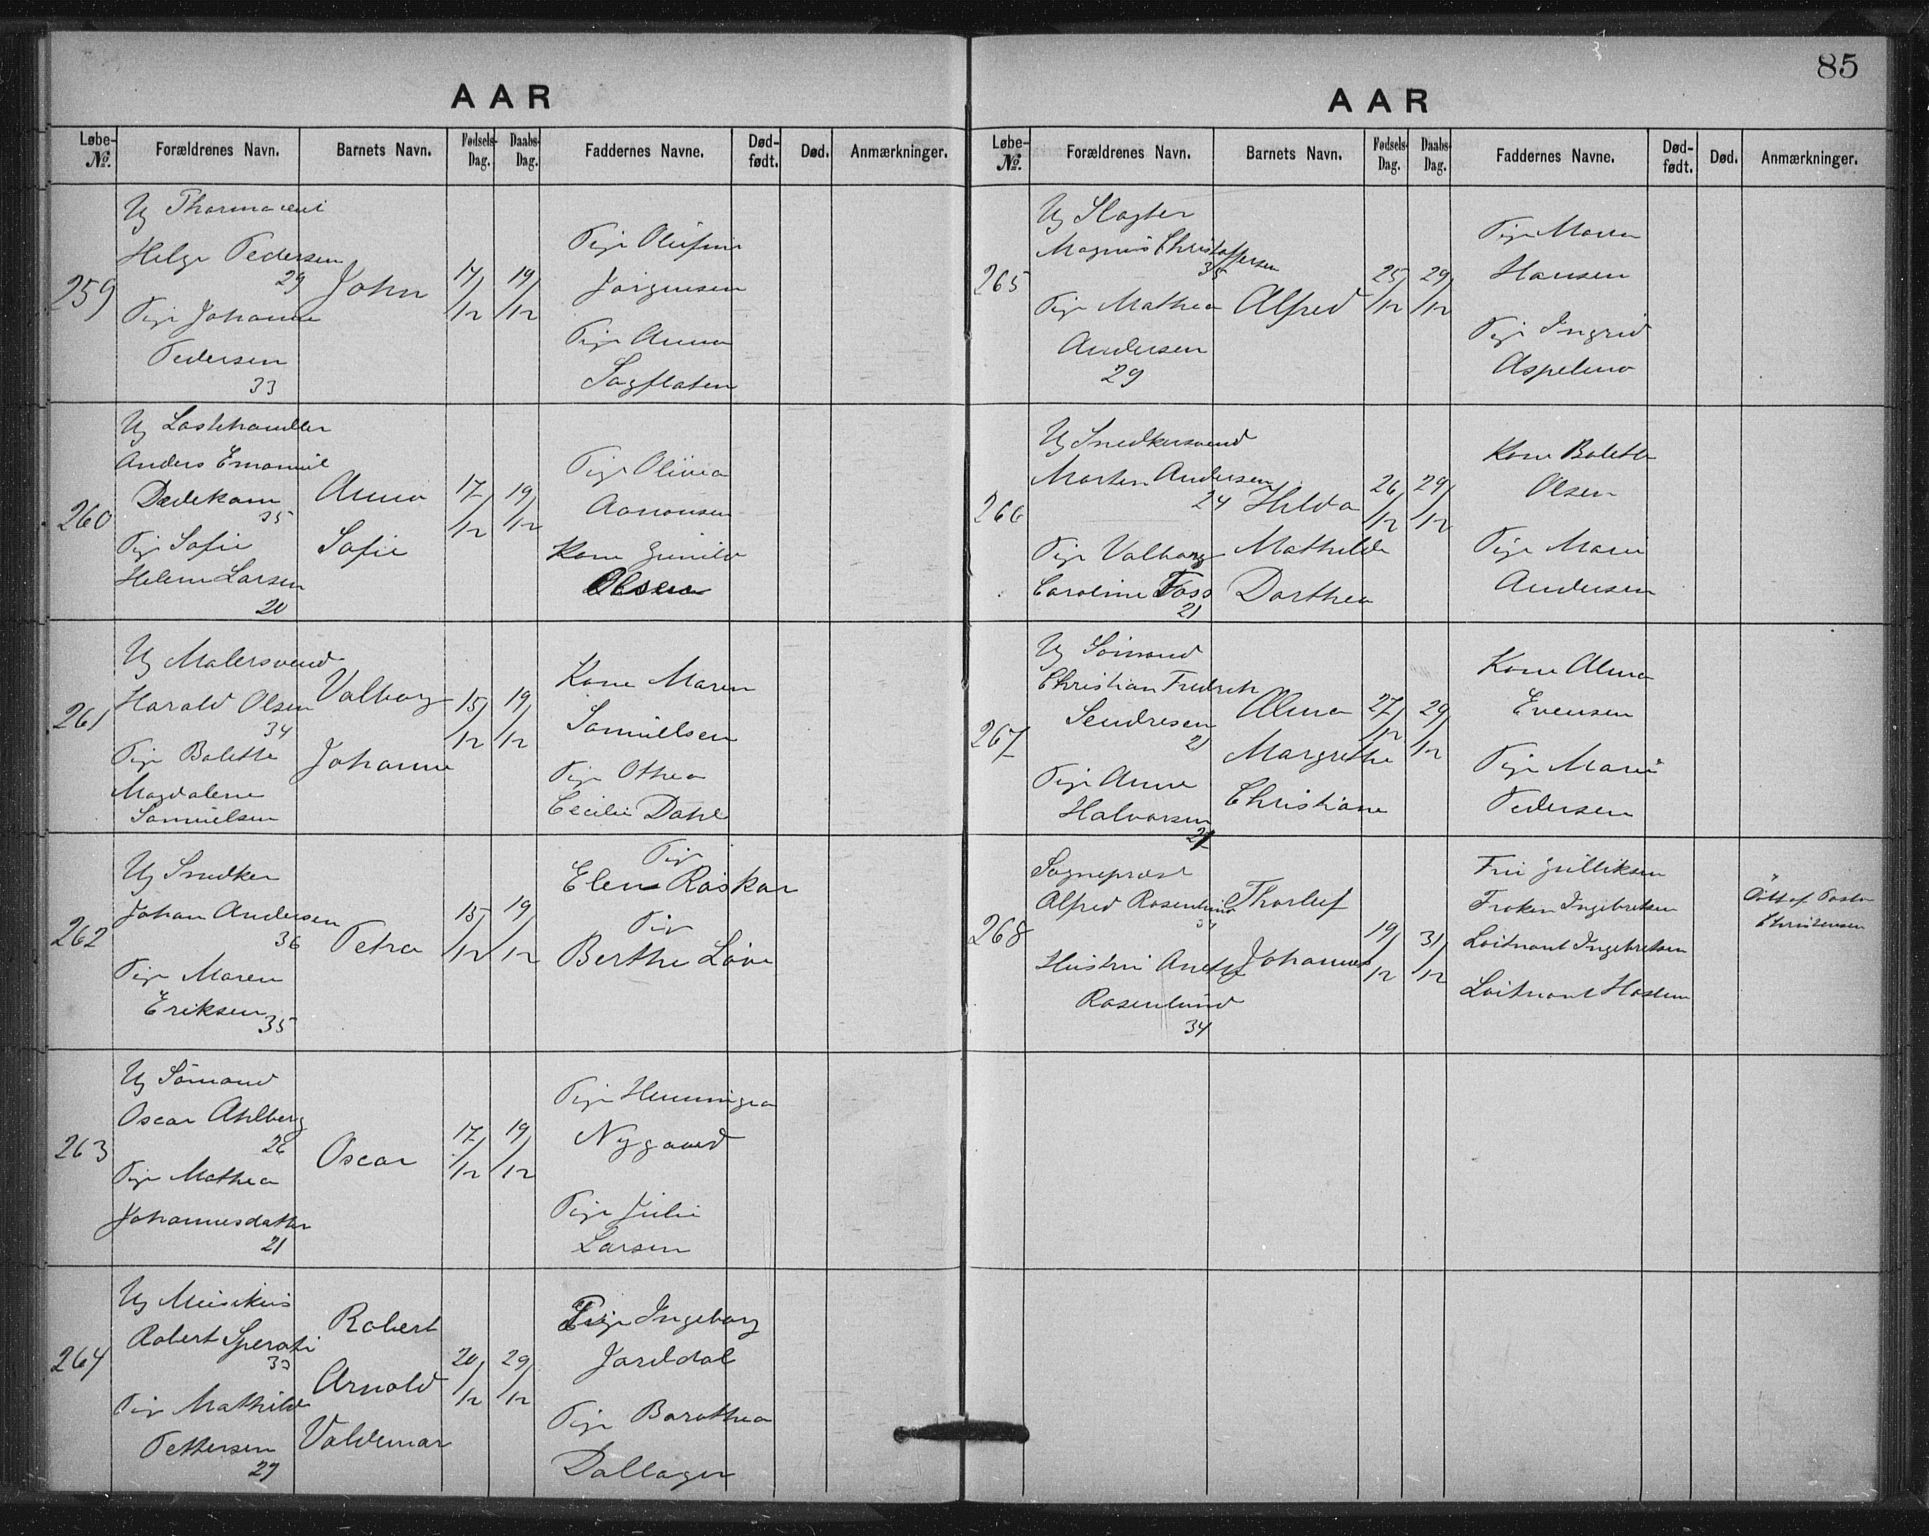 AAR
Løbe-No.
Forældrenes Navn.
Barnets Navn.
Fødsels-Dag.
Daabs-Dag.
Faddernes Navne.
Død-født.
Død.
Anmærkninger.
259
Ug Pharmaceut
Helge Pedersen
29
Pige Johanne
Pedersen
33
John
14/12
19/12
Pige Olufine
Jørgensen
Pige Anna
Sagflaten
260
Ug
Anders Emanuel
Dedekam
35
Pige Sofie
Helene Larsen
20
Anna
Sofie
17/12
19/12
Pige Olivia
Aanonsen
Kone Gunild
Olsen
261
Ug Malersvend
Harald Olsen
34
Pige Bolette
Magdalene
Samuelsen
Valborg
Johanne
15/12
19/12
Kone Maren
Samuelsen
Pige Othea
Cecilie Dahl
262
Ug Snedker
Johan Andersen
36
Pige Maren
Eriksen
35
Petra
15/12
19/12
Pige
Elen Røskar
Pige
Berthe Løve
263
Ug Sømand
Oscar Ahlberg
26
Pige Mathea
Johannesdatter
21
Oscar
17/12
19/12
Pige Henningea
Nygaard
Pige Julie
Larsen
264
Ug Musikus
Robert Sperati
33
Pige Mathilde
Pettersen
29
Robert
Arnold
Valdemar
20/12
29/12
Pige Ingeborg
Jareldal
Pige Barothea
Dallager
85
AAR
Løbe-No.
Forældrenes Navn.
Barnets Navn.
Fødsels-Dag.
Daabs-Dag.
Faddernes Navne.
Død-født.
Død.
Anmærkninger.
265
Ug Slagter
Magnus Christoffersen
35
Pige Mathea
Andersen
29
Alfred
25/12
29/12
Pige Maren
Hansen
Pige Ingrid
Aspelund
266
Ug Snedkersvend
Morten Andersen
24
Pige Valborg
Caroline Foss
21
Hilda
Mathilde
Dorthea
26/12
29/12
Kone Bolette
Olsen
Pige Marie
Andersen
267
Ug Sømand
Christian Fredrik
Sendresen
21
Pige Anna
Halvorsen
21
Alma
Margrethe
Christiane
27/12
29/12
Kone Alma
Evensen
Pige Marie
Pedersen
268
Sogneprest
Alfred Rosenlund
Hustru Anette
Rosenlund
34
Thorleif
Johannes
19/12
31/12
Fru Gulliksen
Frøken Ingebretsen
Løitnant Ingebretsen
Løitnant Haslem
Døbt af Pastor
Christensen